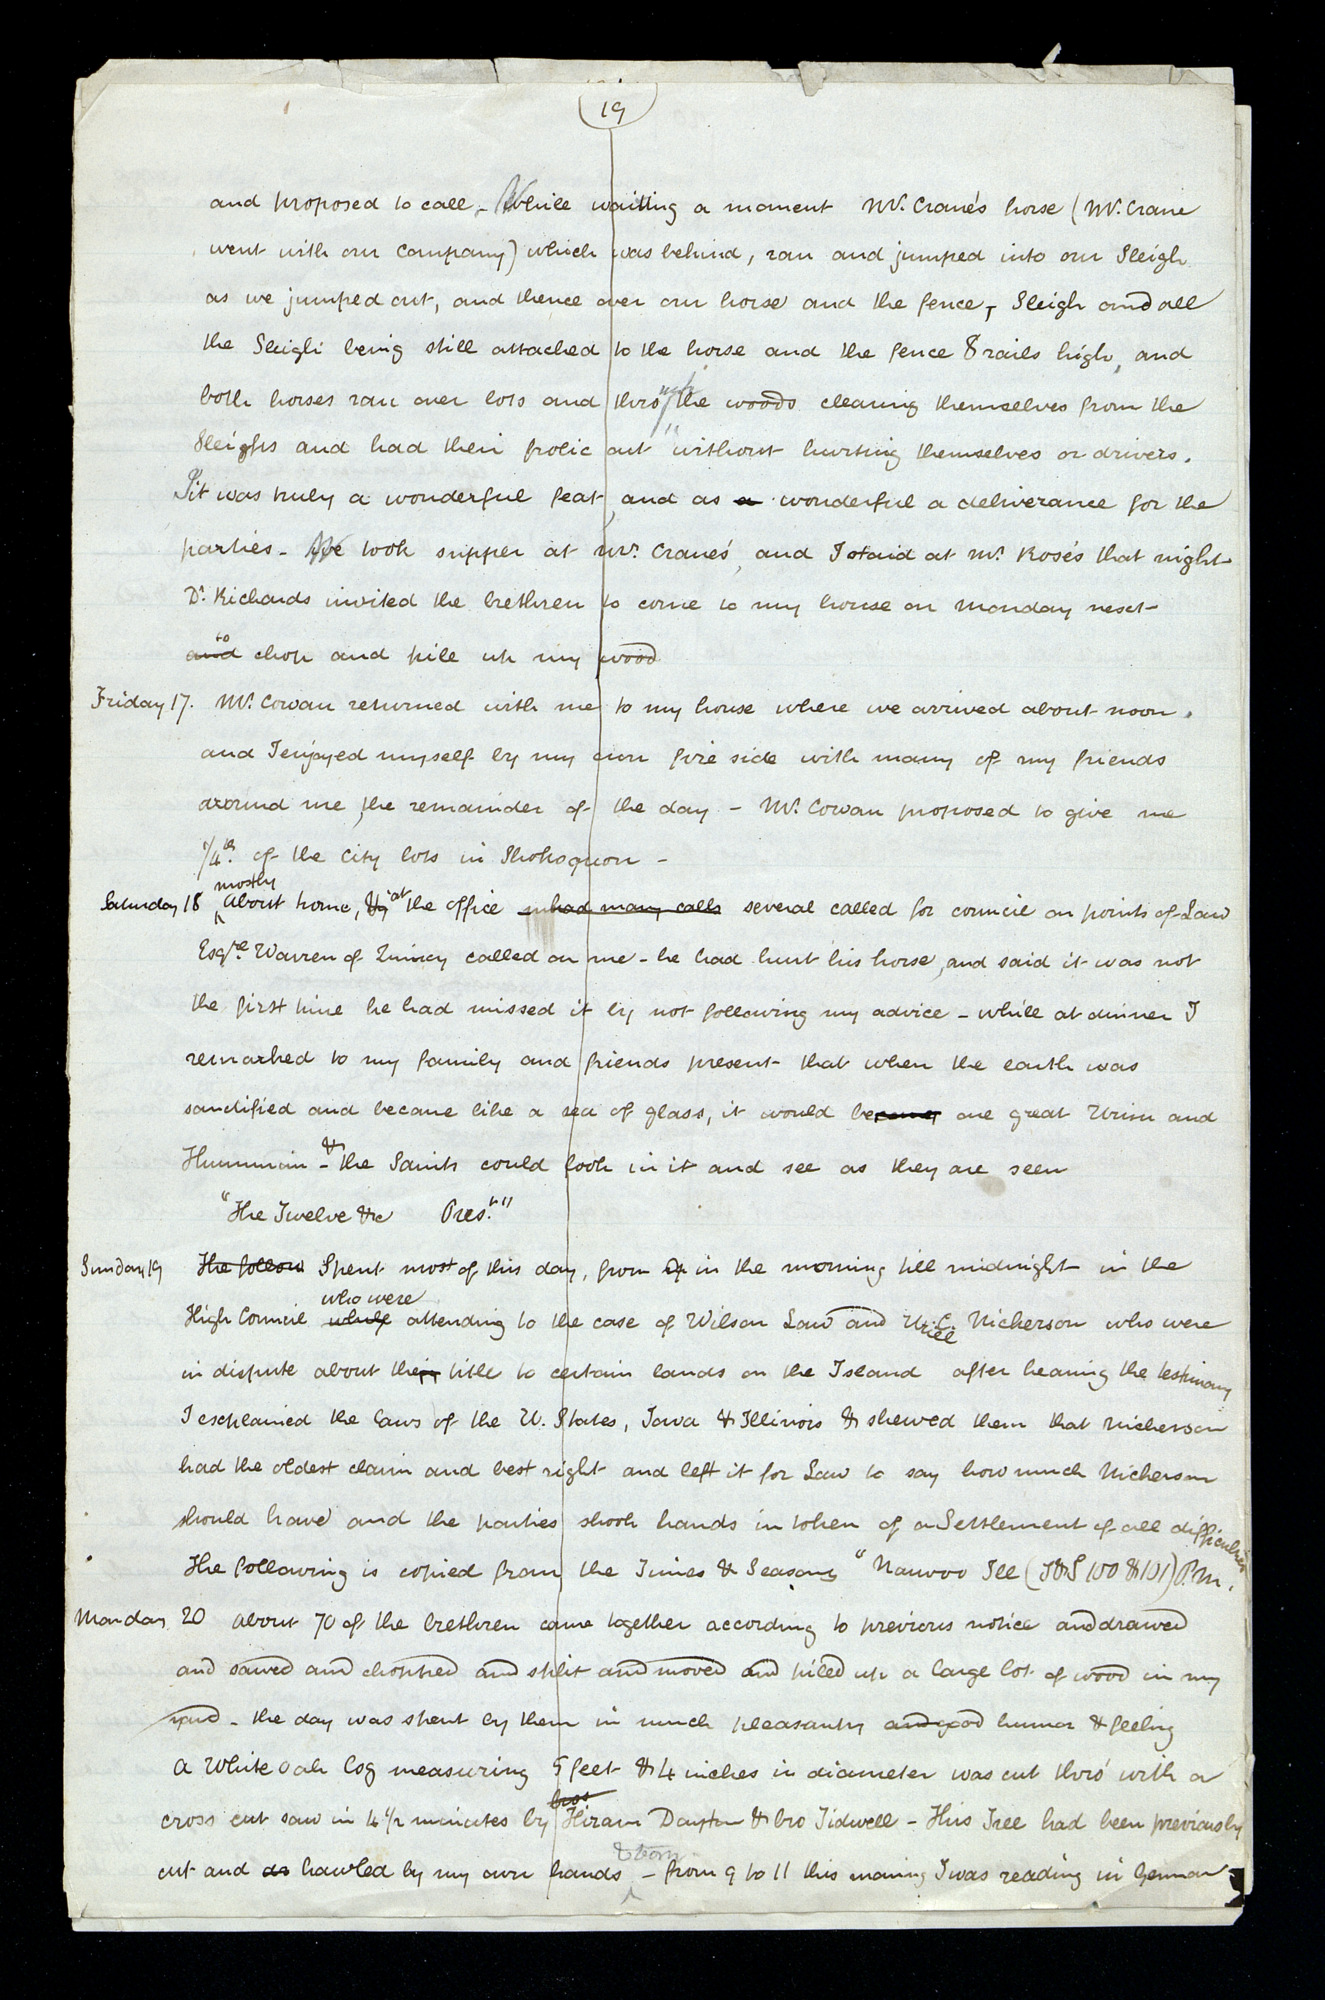 19
and proposed to call,- While waiting a moment Mr. Crane's horse (Mr. Crane
went with our company) which was behind, ran and jumped into our Sleigh
as we jumped out, and thence over our horse and the fence, Sleigh and all
the Sleigh being still attached to the horse and the fence 8 rails high, and
both horses ran over lots and thro' the woods clearing themselves from the
Sleighs and had their frolic out without hurting themselves or drivers.
it was truly a wonderful feat, and as a wonderful a deliverance for the
parties- We took supper at Mr. Crane's, and I staid at Mr. Rose's that night
Dr. Richards invited the brethren to come to my house on Monday next
and to chop and pile up my wood
Friday 17. Mr. Cowan returned with me to my house where we arrived about noon.
and I enjoyed myself by my own fire side with many of my friends
around me, the remainder of the day - Mr. Cowan proposed to give me
1/4th. of the city lots in Shokoquon -
mostly
Saturday 18 About home, & at the office had many calls several called for council on points of Law
Esqre. Warren of Quincy called on me - he had hurt his horse, and said it was not
the first time he had missed it by not following my advice - while at dinner I
remarked to my family and friends present that when the earth was
sanctified and became like a sea of glass, it would become one great Urim and
Thummim - & the Saints could look in it and see as they are seen
"The Twelve &c Prest."
Sunday 19 The follow Spent most of this day, from 9 in the morning till midnight in the
who were
High Council while attending to the case of Wilson Law and Uriel C. Nickerson who were
in dispute about their title to certain lands on the Island after hearing the testimony
I explained the laws of the U. States, Iowa & Illinois & shewed them that Nickerson
had the oldest claim and best right and left it for Law to say how much Nickerson
should have and the parties shook hands in token of a Settlement of all difficulties
The following is copied from the Times & Seasons "Nauvoo Ill (T&S 100 & 101) P.M.
Monday 20 about 70 of the brethren came together according to previous notice and drawed
and sawed and chopped and split and moved and piled up a large lot of wood in my
yard - the day was spent by them in much pleasantry and good humor & feeling
A White oak log measuring 5 feet & 4 inches in diameter was cut thro' with a
bro
cross cut saw in 4 1/2 minutes by Hiram Dayton & bro Tidwell - This Tree had been previously
cut and as hawled by my own hands - from 9 to 11 this morning I was reading in German